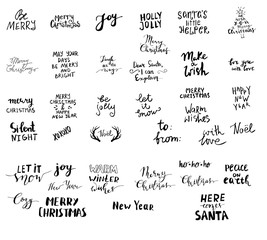 Be
MERRY
Merry
Christmas
joy
HOLLY
JOLLY
SANTA'S
LITTLE
HELPER
Merry
Christmas
MAY YOUR
DAYS
BE MERRY
AND
BRIGHT
Merry
Christmas
Dear Santa,
I can
Explain
Make
a
Wish
for you
with love
merry
CHRISTMAS
MERRY
CHRISTMAS
& a
HAPPY
NEW YEAR
be
jolly
let it
snow
MERRY
CHRISTMAS
Warm
wishes
HAPPY
NEW
YEAR
Silent
NIGHT
XOXOXO
Noel
to:
from:
with
love
Noel
LET IT
snow
joy
New Year
WARM
winter
wishes
Merry
Christmas
ho-ho-ho
Christmas
PEACE
on
earth
Cozy
MERRY
CHRISTMAS
New Year
HERE
comes
SANTA